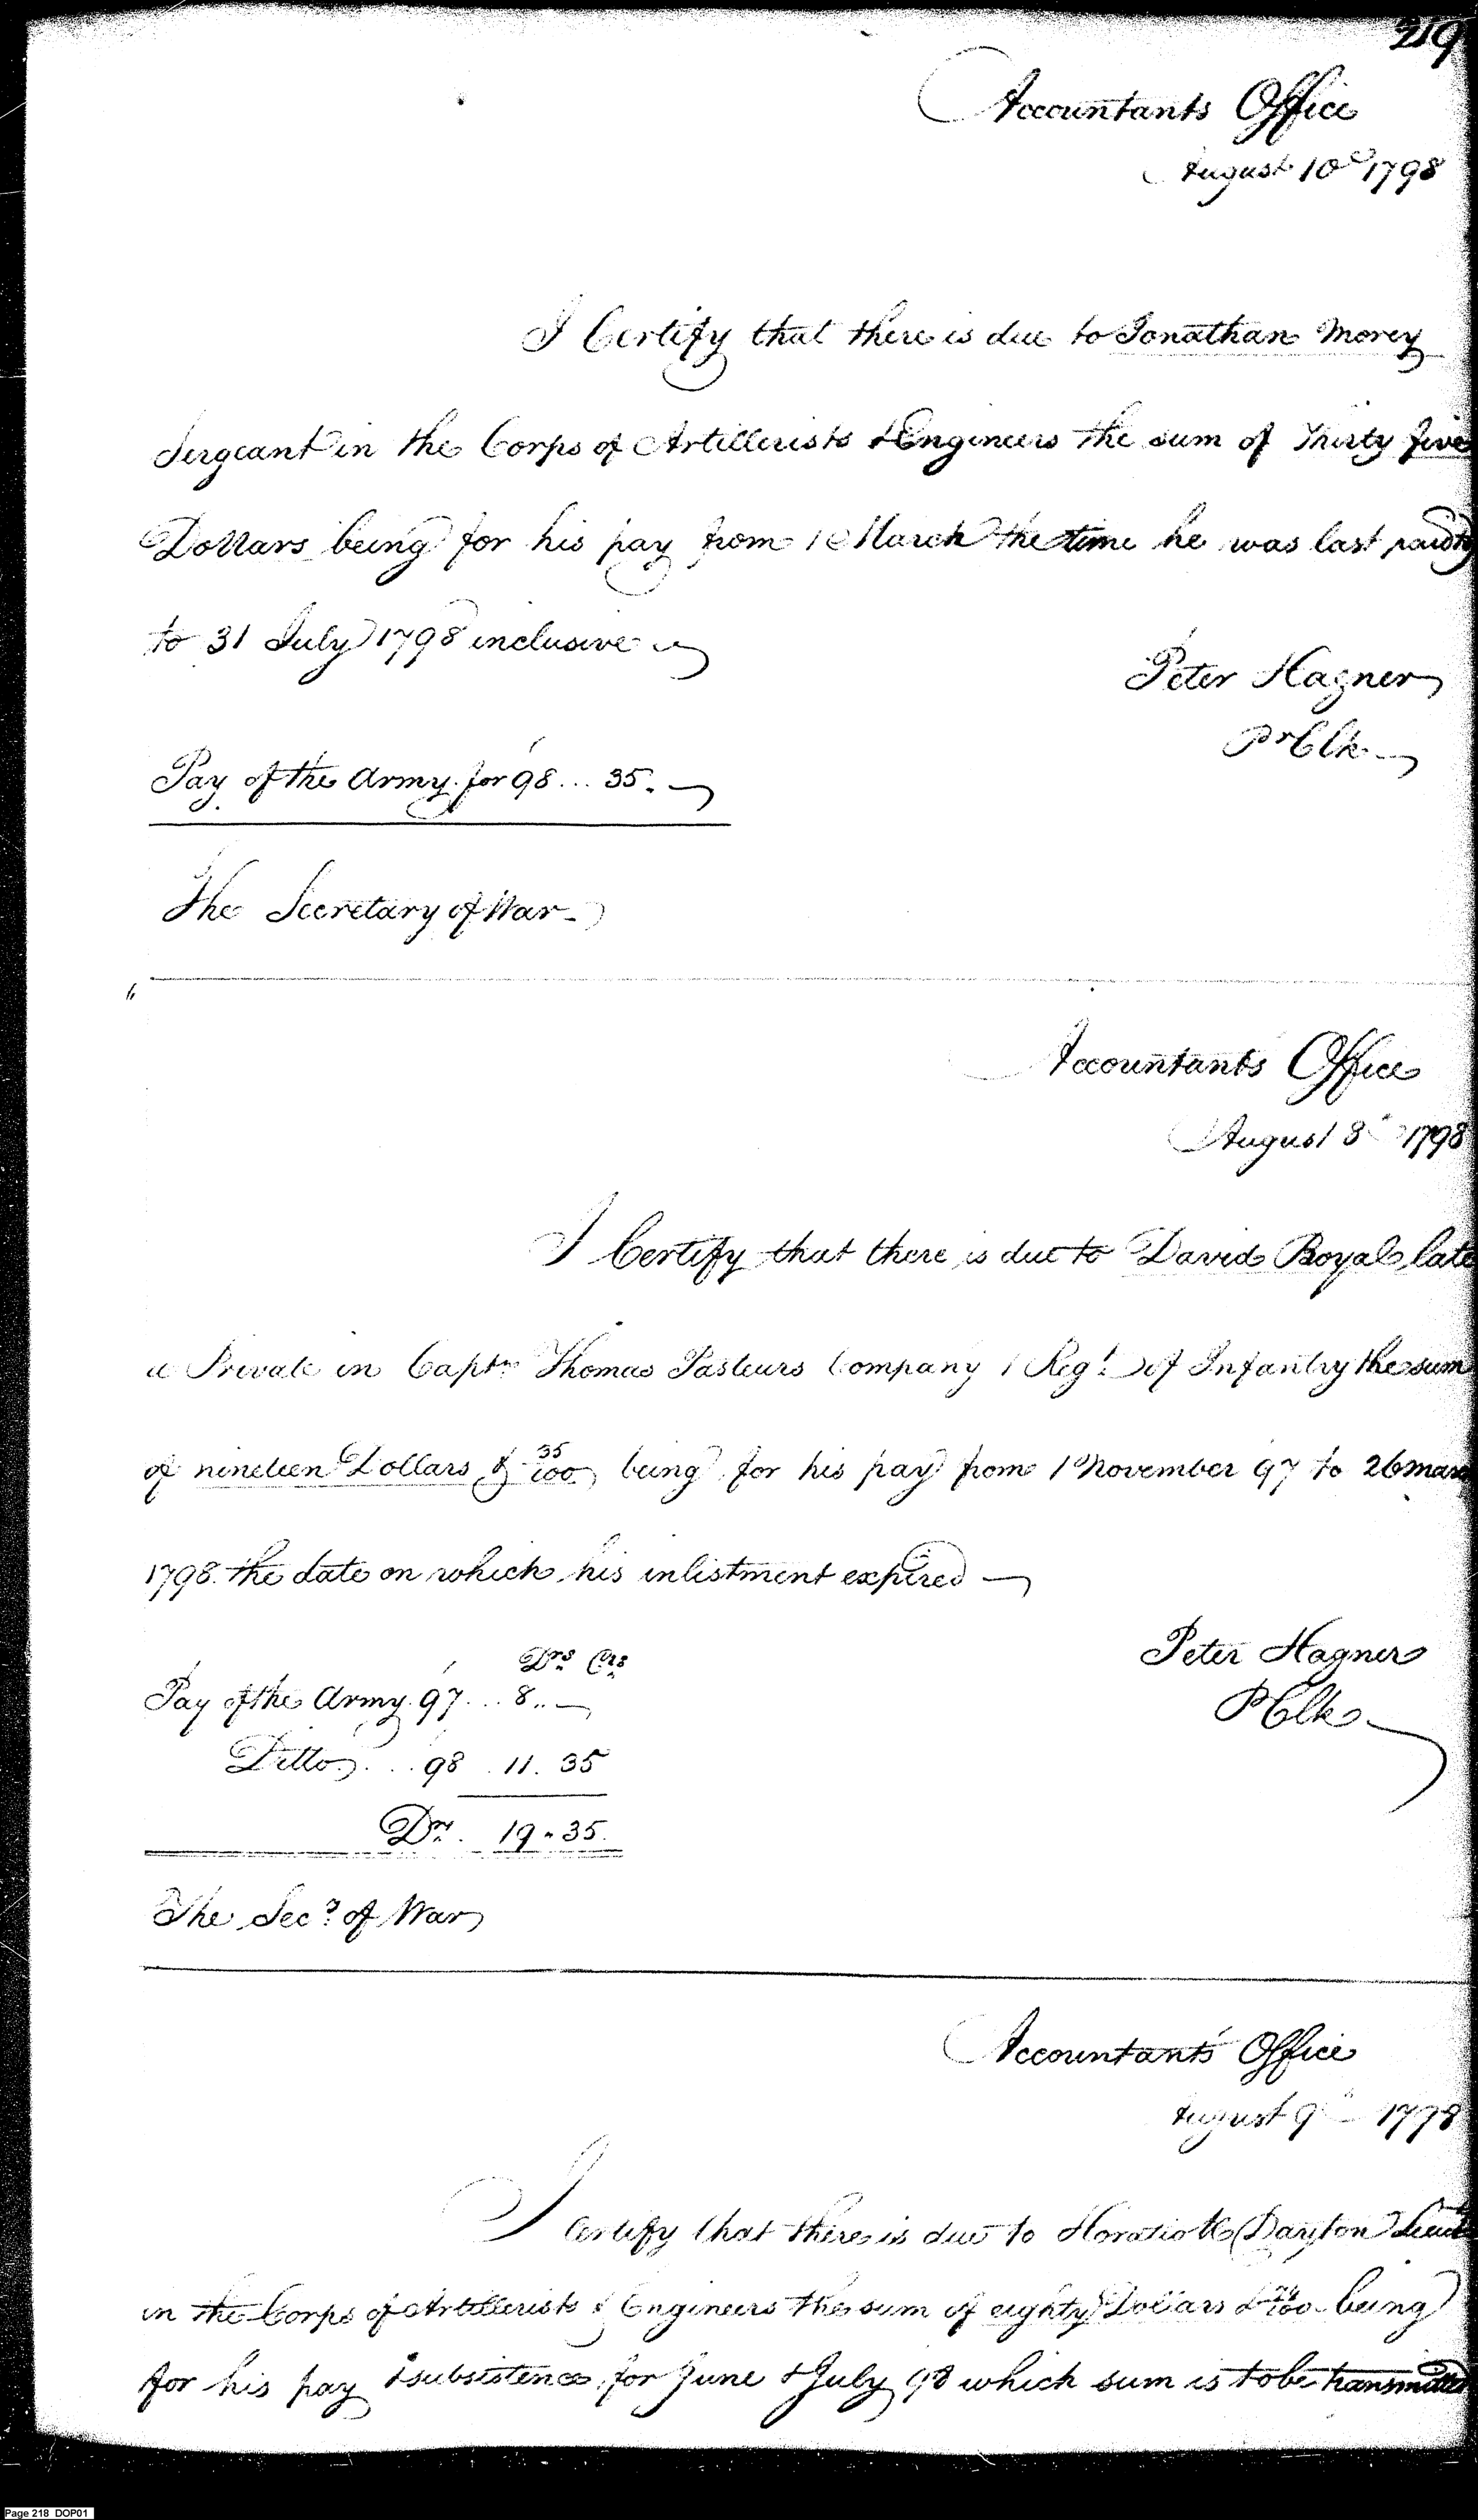 219
Accountants Office
August 10th 1798
I Certify that there is due to Jonathan Morey
Sergeant in the Corps of Artillerists & Engineers the sum of Thirty five
Dollars being for his pay from 1 March the time he was last paid to
to 31 July 1798 inclusive
Peter Hagner
Pr Clk
Pay of the Army for 98 ... 35.
The Secretary of War
Accountants Office
August 8 1798
I Certify that there is due to David Royal late
a Private in Captn Thomas Pasteurs Company 1 Regt of Infantry the sum
of nineteen Dollars & 35/100 being for his pay from 1 November 97 to 26 march
1798. the date on which his inlistment expired
Peter Hagner
P Clk
Drs Cts
Pay of the Army. 97 ... 8..
Ditto ... 98 . 11. 35
Drs. 19 " 35.
The Secy of War
Accountants Office
August 9 1798
I Certify that there is due to Horatio R Dayton Lieut
in the Corps of Artillerists & Engineers the sum of eighty Dollars & /100 being
for his pay & subsistence for June & July 98 which sum is to be transmitted
Page 218 DOP01